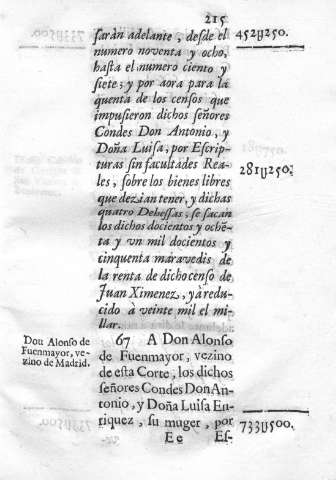 215
sarán adelante, desde el
numero noventa y ocho,
hasta el numero ciento y
siete; y por aora para la
quenta de los censos que
impusieron dichos señores
Condes Don Antonio, y
Doña Luisa, por Escrip-
turas sin facultades Rea-
les, sobre los bienes libres
que dezian tener, y dichas
quatro Dehessas, se sacan
los dichos docientos y ochē-
ta y vn mil docientos y
cinquenta maravedis de
la renta de dicho censo de
Juan Ximenez, yà redu-
cido à veinte mil el mi-
llar.
452U250.
281U250.
Don Alonso de
Fuenmayor, ve-
zino de Madrid.
67 A Don Alonso
de Fuenmayor, vezino
de esta Corte, los dichos
señores Condes Don An-
tonio, y Doña Luisa En-
riquez, su muger, por
733U500.
Ee Es-